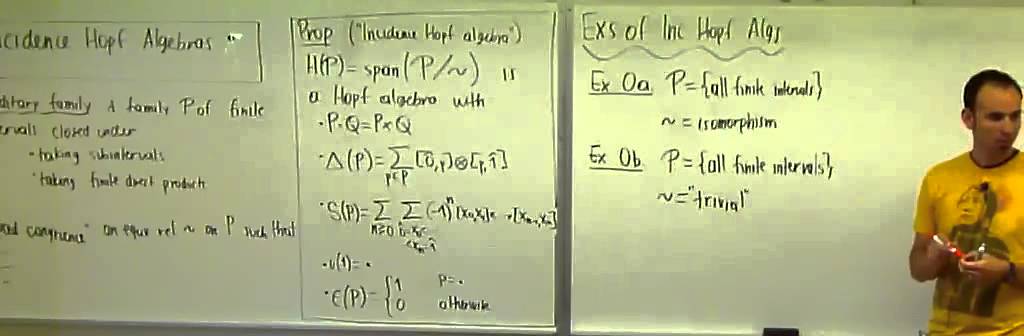 cidence Hopf Algebras "
ditary family A family P of finite
ervals closed under
• taking subintervals
• taking finite direct products
congruence" an equiv rel ~ on P such that
Prop ("Incidence Hopf algebra")
H(P) = span(P/~) is
a Hopf algebra with
• P·Q = P×Q
• Δ(P) = ∑ [0̂,p]⊗[p,1̂]
p∈P
• S(P) = ∑ ∑ (-1)ⁿ [x₀,x₁]× ··· ×[xₙ₋₁,xₙ]
n≥0 0̂=x₀<
<xₙ=1̂
• u(1) = •
• ε(P) = { 1 P=•
0 otherwise
Exs of Inc Hopf Algs
Ex 0a P = {all finite intervals}
~ = isomorphism
Ex 0b P = {all finite intervals},
~ = "trivial"